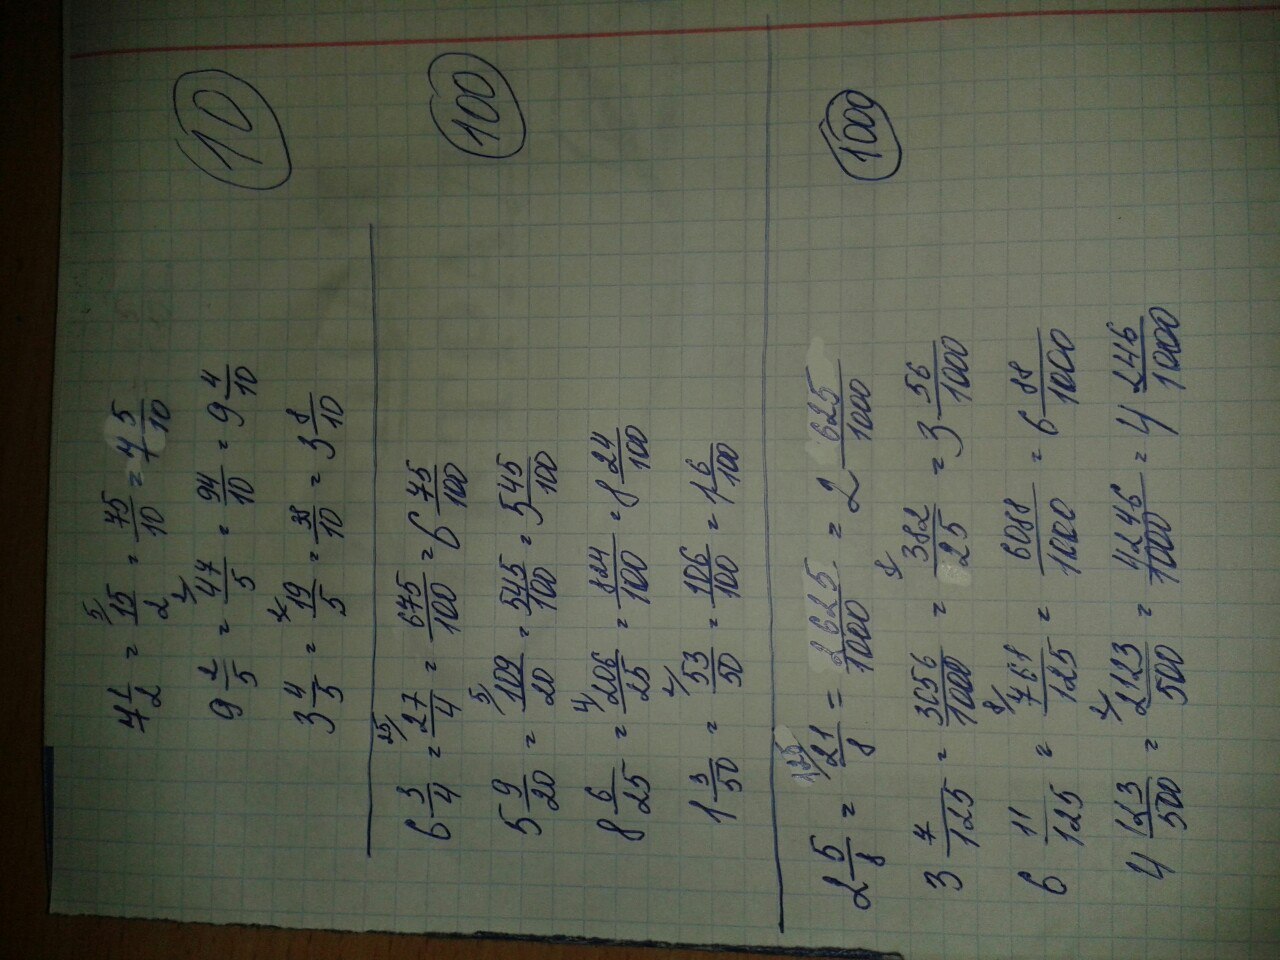 10
7 1/2 = 5/ 15/2 = 75/10 = 7 5/10
9 2/5 = 2/ 47/5 = 94/10 = 9 4/10
3 4/5 = 2/ 19/5 = 38/10 = 3 8/10
100
6 3/4 = 25/ 27/4 = 675/100 = 6 75/100
5 9/20 = 5/ 109/20 = 545/100 = 5 45/100
8 6/25 = 4/ 206/25 = 824/100 = 8 24/100
1 3/50 = 2/ 53/50 = 106/100 = 1 6/100
1000
2 5/8 = 125/ 21/8 = 2625/1000 = 2 625/1000
3 7/125 = 3056/1000 = 8 382/25 = 3 56/1000
6 11/125 = 8/ 761/125 = 6088/1000 = 6 88/1000
4 123/500 = 2/ 2123/500 = 4246/1000 = 4 246/1000